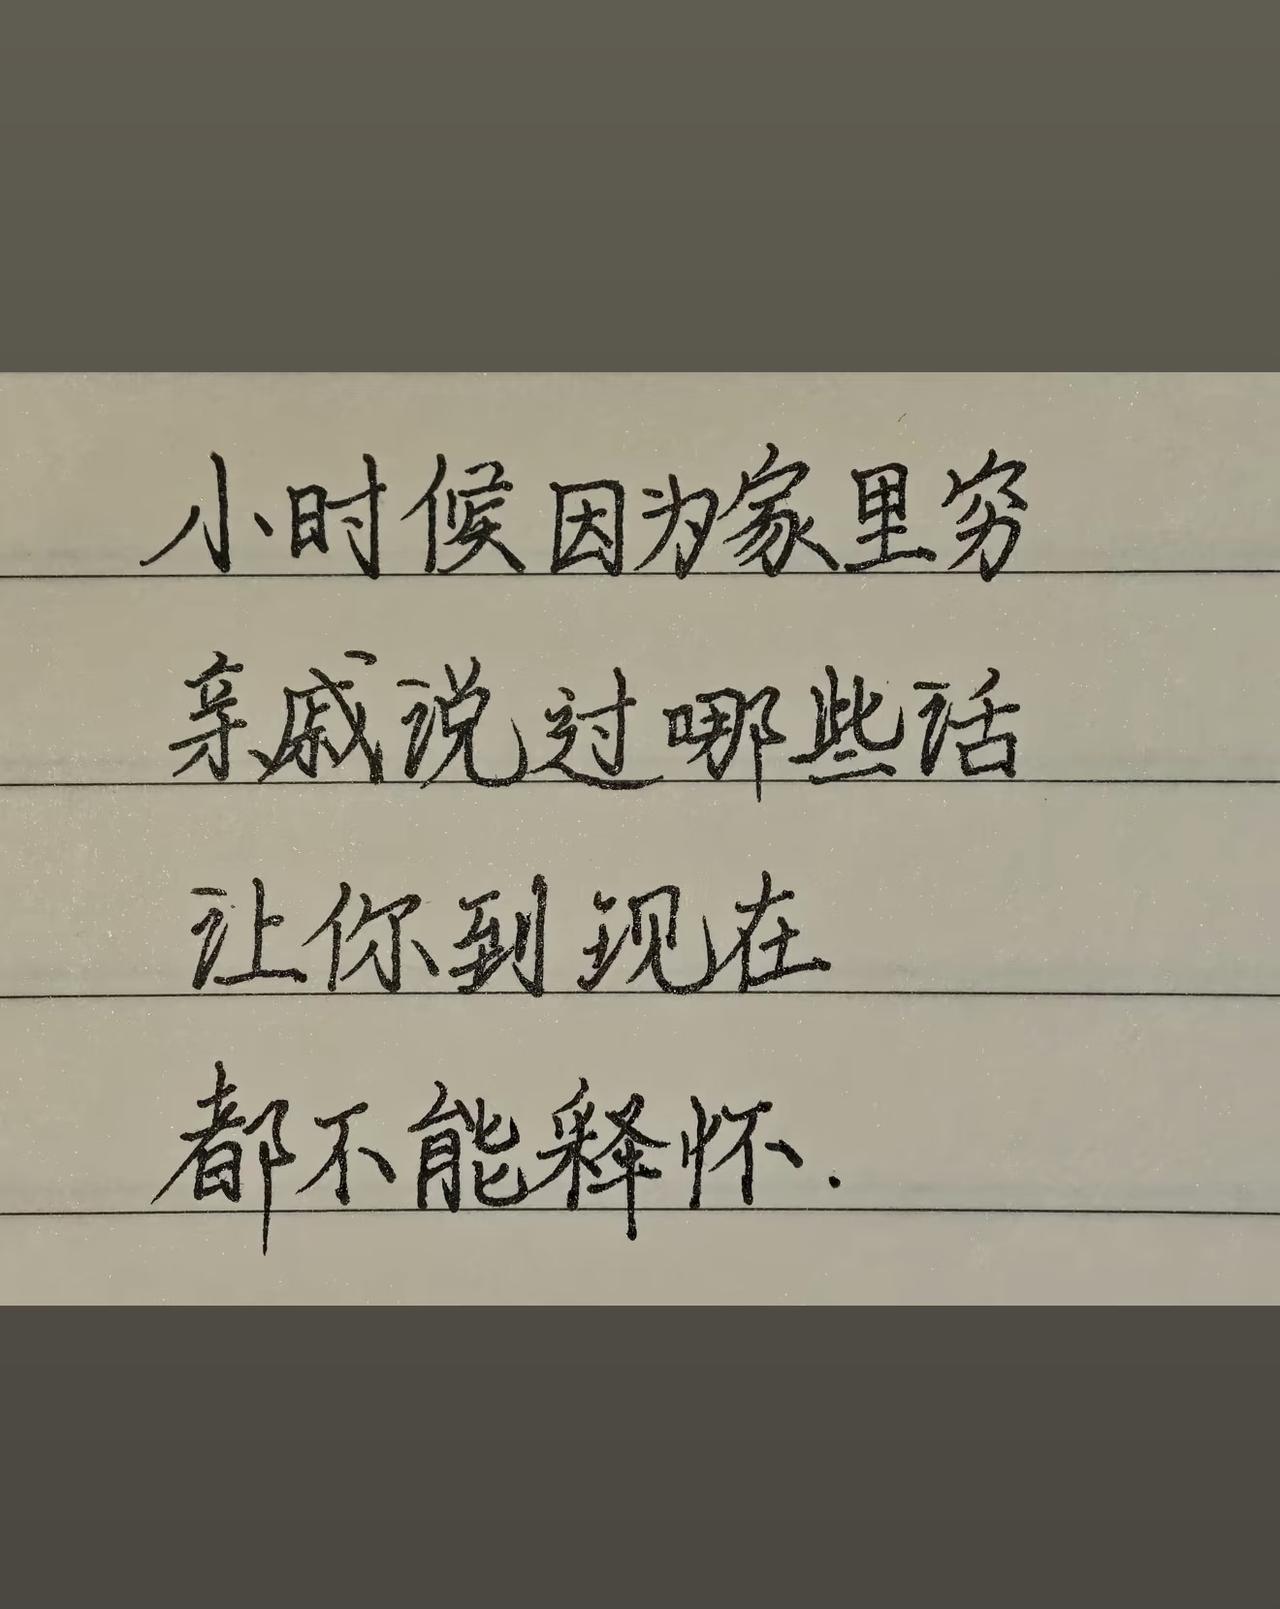 小时候因为家里穷
亲戚说过哪些话
让你到现在
都不能释怀.